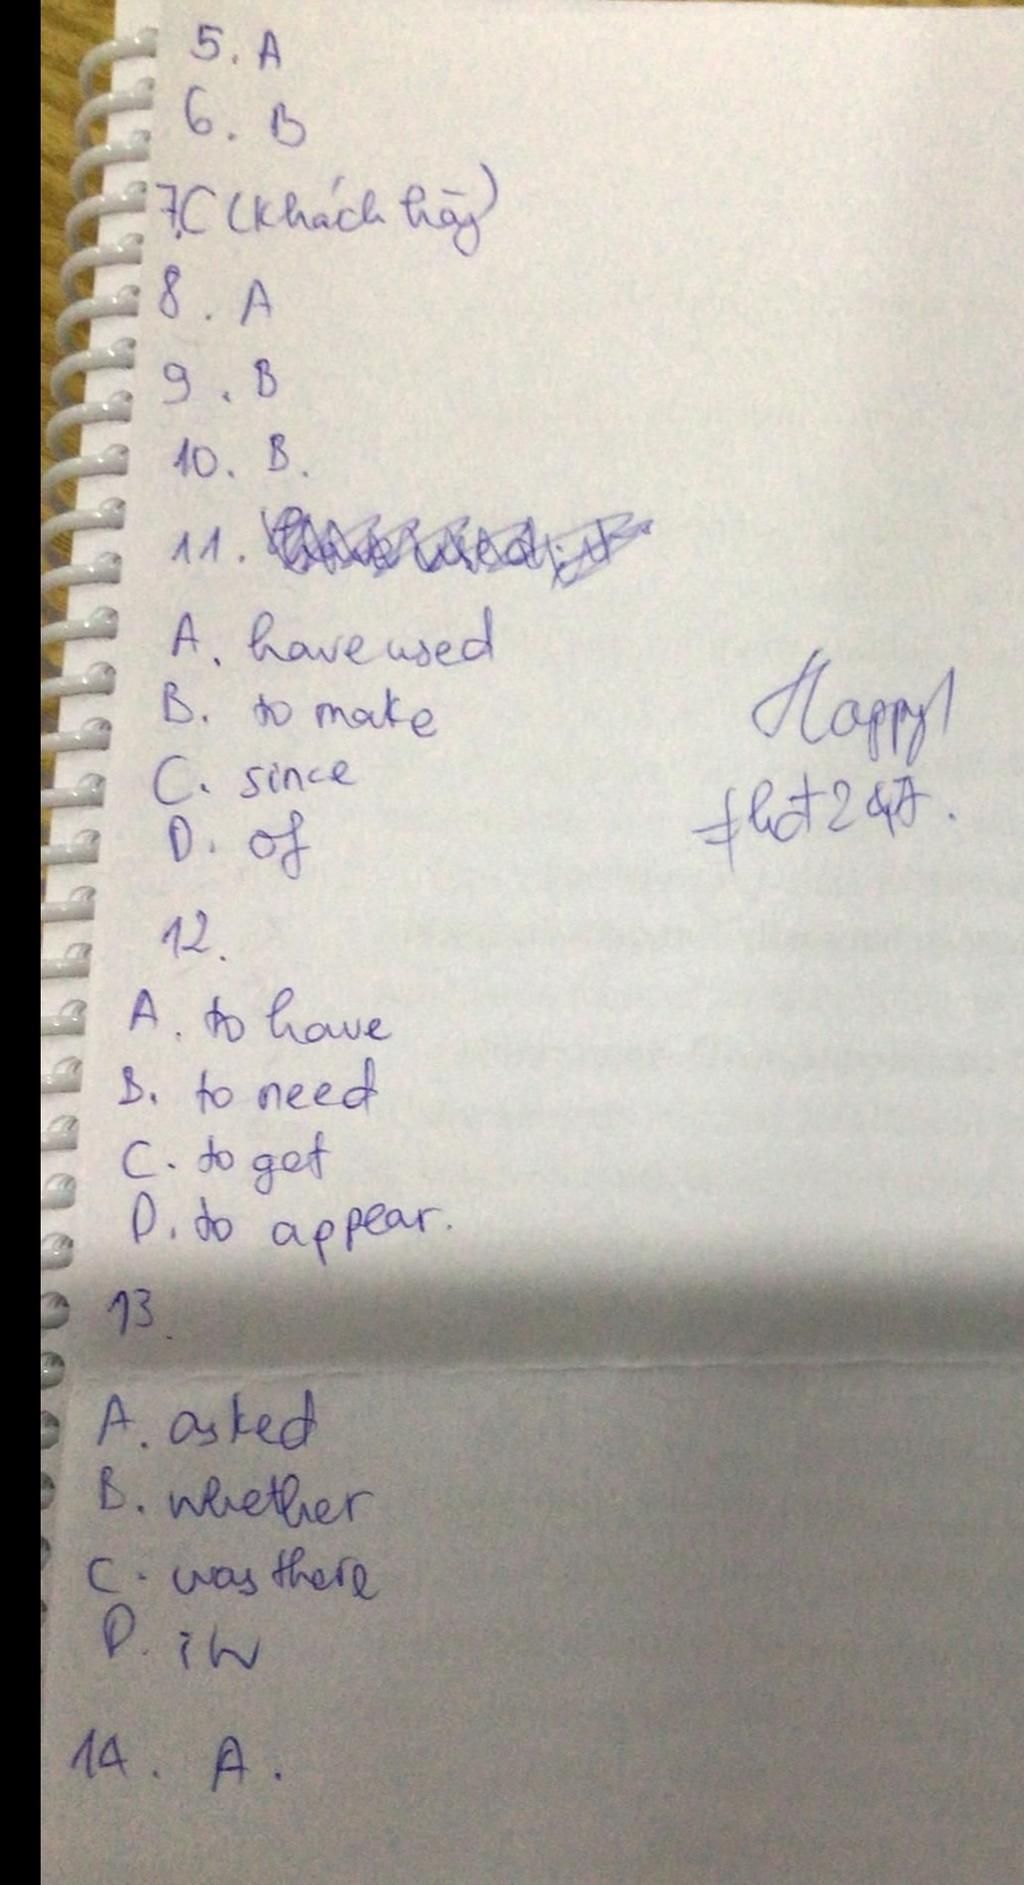 5. A
6. B
7. C (Khách hàg)
8. A
9. B
10. B.
11.
A. have used
B. to make
C. since
D. of
Happy!
#hđt247.
12.
A. to have
B. to need
C. to get
D. to appear.
13.
A. asked
B. whether
C. was there
D. in
14. A.